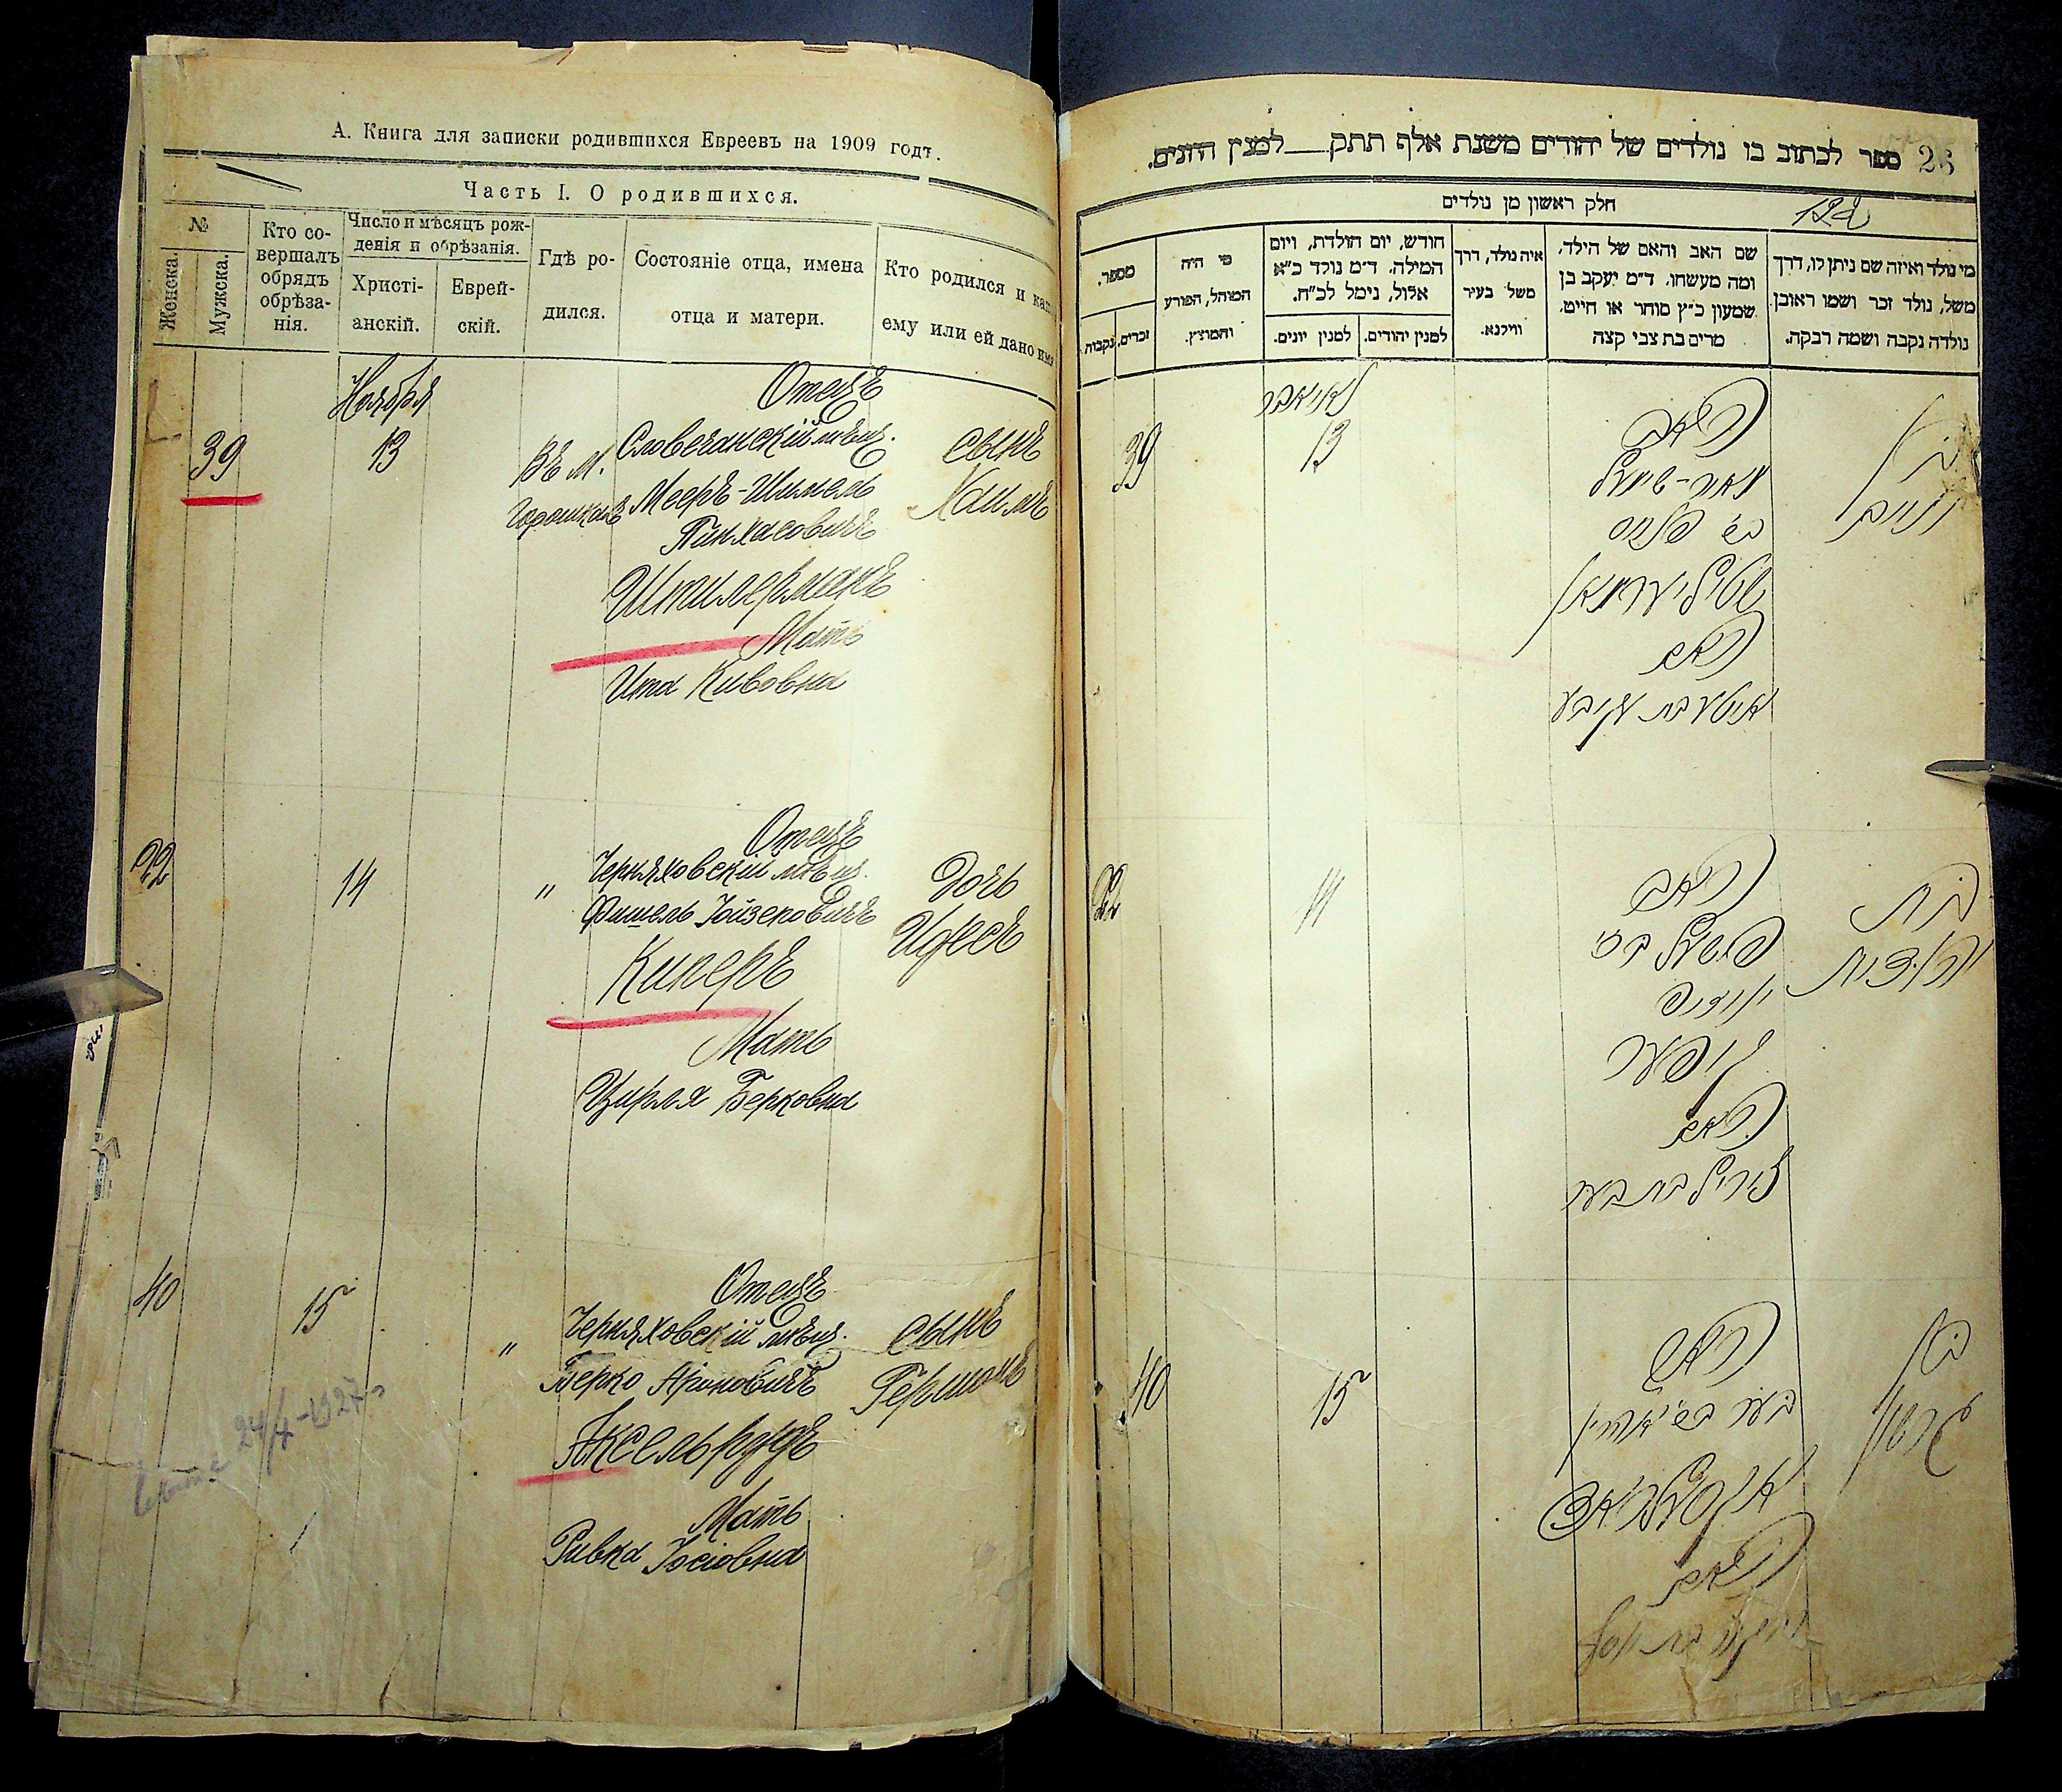 А. Книга для записки родившихся Евреевъ на 1909 годъ.
Часть I. О родившихся.
№
Женска.
Мужска.
Кто со-
вершалъ
обрядъ
обрѣза-
нія.
Число и мѣсяцъ рож-
денія и обрѣзанія.
Христі-
анскій.
Еврей-
скій.
Гдѣ ро-
дился.
Состояніе отца, имена
отца и матери.
Кто родился и как
ему или ей дано имя
Ноября
39
13
Въ м.
Горошкахъ
Отецъ
Словечанскій мѣщ.
Мееръ-Шмель
Пинхасовичъ
Шпилерманъ
Мать
Ита Кивовна
сынъ
Хаимъ
22
14
"
Отецъ
Черняховскій мѣщ.
Фишель
Киперъ
Мать
Цирля Берковна
Дочь
40
15
"
Отецъ
Черняховскій мѣщ.
Берко Ароновичъ
Аксельрудъ
Мать
Ривка Іосіовна
сынъ
Гершонъ
24/4-1927
26
ספר לכתוב בו נולדים של יהודים משנת אלף תתק__למנין היונים.
חלק ראשון מן נולדים
122
מי נולד ואיזה שם ניתן לו, דרך
משל, נולד זכר ושמו ראובן
נולדה נקבה ושמה רבקה.
שם האב והאם של הילד,
ומה מעשהו. ד״מ יעקב בן
שמעון כ״ץ סוחר או חייט,
מרים בת צבי קצה
איה נולד, דרך
משל בעיר
ווילנא.
חודש, יום הולדת, ויום
המילה. ד״מ נולד כ״א
אלול, נימל לכ״ח.
למנין יהודים.
למנין יונים.
מי היה
המוהל, הפורע
והמוצץ.
מספר.
זכרים.
נקבות
נאיאבר
39
13
האב
מאיר-שמעל
פנחס
שפילערמאן
האם
איטע בת עקיבא
בן
חיים
22
14
האב
פישעל
קיפער
האם
בת
40
15
האב
אקסעלראד
האם
בן
גרשון